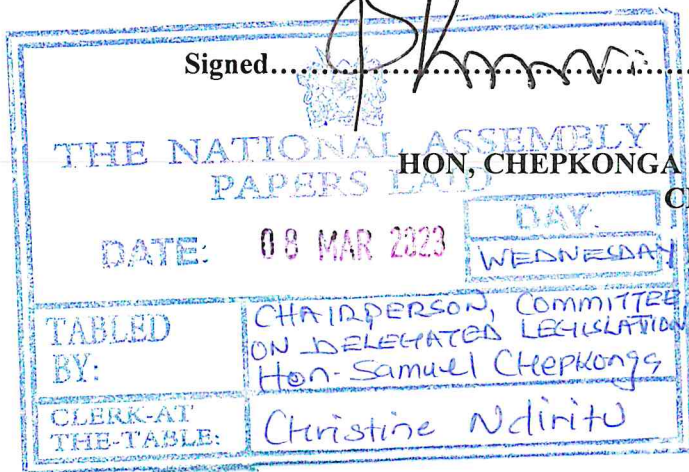 Signed
THE NATIONAL ASSEMBLY
PAPERS LAID
HON, CHEPKONGA
DATE: 08 MAR 2023
DAY:
WEDNESDAY
TABLED BY:
CHAIRPERSON, COMMITTEE
ON DELEGATED LEGISLATION
Hon. Samuel Chepkonga
CLERK-AT
THE-TABLE:
Christine Ndiritu